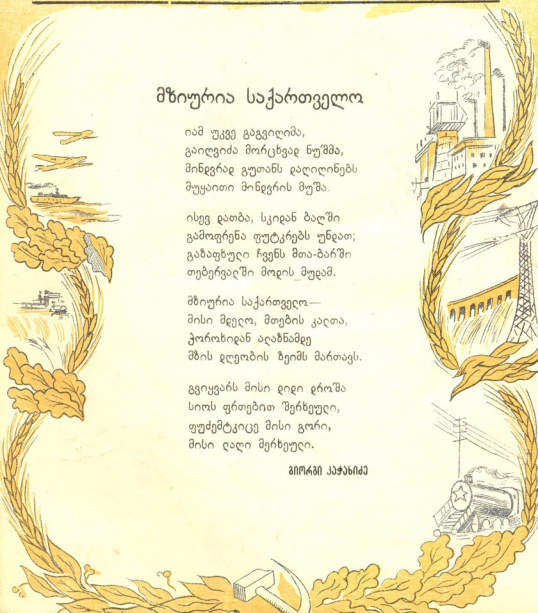 მზიურია საქართველო
იამ უკვე გაგვიღიმა,
გაიღვიძა მორცხვად ნუშმა,
მინდვრად გუთანს დაღიღინებს
მუყაითი მინდვრის მუშა.
ისევ დათბა, სკიდან ბაღში
გამოფრენა ფუტკრებს უნდათ;
გაზაფხული ჩვენს მთა-ბარში
თებერვალში მოდის მუდამ.
მზიურია საქართველო—
მისი მდელო, მთების კალთა,
ჭოროხიდან ალაზნამდე
მზის დღეობის ზეიმს მართავს.
გვიყვარს მისი დიდი დროშა
სიოს ფრთებით შერხეული,
ფუძემტკიცე მისი გორი,
მისი ლაღი მერხეული.
გიორგი კაჭახიძე